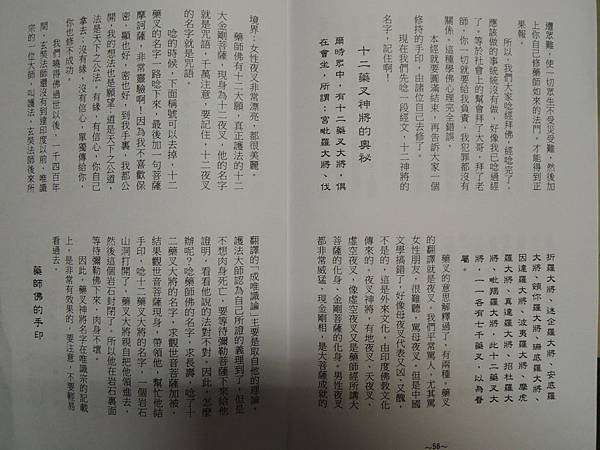 遭眾難，使一切眾生不受災受難，然後加
上你自己修藥師如來的法門，才能得到正
果報。
所以，我們大家唸經拜佛，經唸完了，
應該做的事統統沒有做，好像我已唸過經
了，等於社會上的幫會拜了大哥，拜了老
師，你一切就要給我負責，我犯罪都沒有
關係，這種學佛心理完全錯誤。
本經就要圓滿結束，再告訴大家一個
修持的手印，由諸位自己去修了。
現在我們先唸一段經文，十二神將的
名字，記住啊！
十二藥叉神將的奧祕
爾時眾中，有十二藥叉大將，俱
在會坐，所謂：宮毗羅大將、伐
折羅大將、迷企羅大將、安底羅
大將、頞你羅大將、珊底羅大將、
因達羅大將、波夷羅大將、摩虎
羅大將、真達羅大將、招杜羅大
將、毗羯羅大將，此十二藥叉大
將，一一各有七千藥叉，以為眷
屬。
藥叉的意思解釋過了，有兩種，藥叉
的翻譯就是夜叉，我們平常罵人，尤其罵
女性朋友，很難聽，罵母夜叉，但是中國
文學搞錯了，好像母夜叉代表又凶、又醜，
不是的，這是外來文化，由印度佛教文化
傳來的，夜叉神將，有地夜叉、天夜叉、
虛空夜叉，像虛空夜叉又是藥師經所講大
菩薩的化身，金剛菩薩的化身，男性夜叉
都非常威猛，現金剛相，是大菩薩成就的
境界；女性夜叉非常漂亮，都很美麗。
藥師佛有十二大願，真正護法的十二
大金剛菩薩，現身為十二夜叉，他的名字
就是咒語，千萬注意，要記住，十二夜叉
的名字就是咒語。
唸的時候，下面稱號可以去掉，十二
藥叉的名字一路唸下來，最後加一句菩薩
摩訶薩，非常靈驗啊！因為我不喜歡保
密，顯也好，密也好，到我手裏，我都公
開，我的想法也是願望，道是天下之公道，
法是天下之公法，有緣，有信心，你自己
拿去，沒有緣，沒有信心，單獨傳給你，
你也修不成功。
我們曉得佛過世以後，一千四百年
間，玄奘法師還沒有到達印度以前，唯識
宗的一位大師，叫護法，玄奘法師後來所
翻譯的「成唯識論」主要是取自他的理論，
護法大師認為自己所證的義理到了，但是
不想肉身死亡，要等待彌勒菩薩下來給他
證明，看看他說的法對不對。因此，怎麼
辦呢？唸藥師佛的名字，求長壽，唸了十
二藥叉大將的名字，求觀世音菩薩加被，
結果觀世音菩薩現身，帶領他，幫忙他結
手印，唸十二藥叉大將的名字，一個岩石
山洞打開了，藥叉大將親自把他領進去，
然後這個岩石封閉了，所以他在岩石裏面
等待彌勒佛下來，肉身不壞。
因此，藥叉神將名字在唯識宗的記載
上，是非常有效果的，要注意，不要輕易
看過去。
藥師佛的手印
~56~